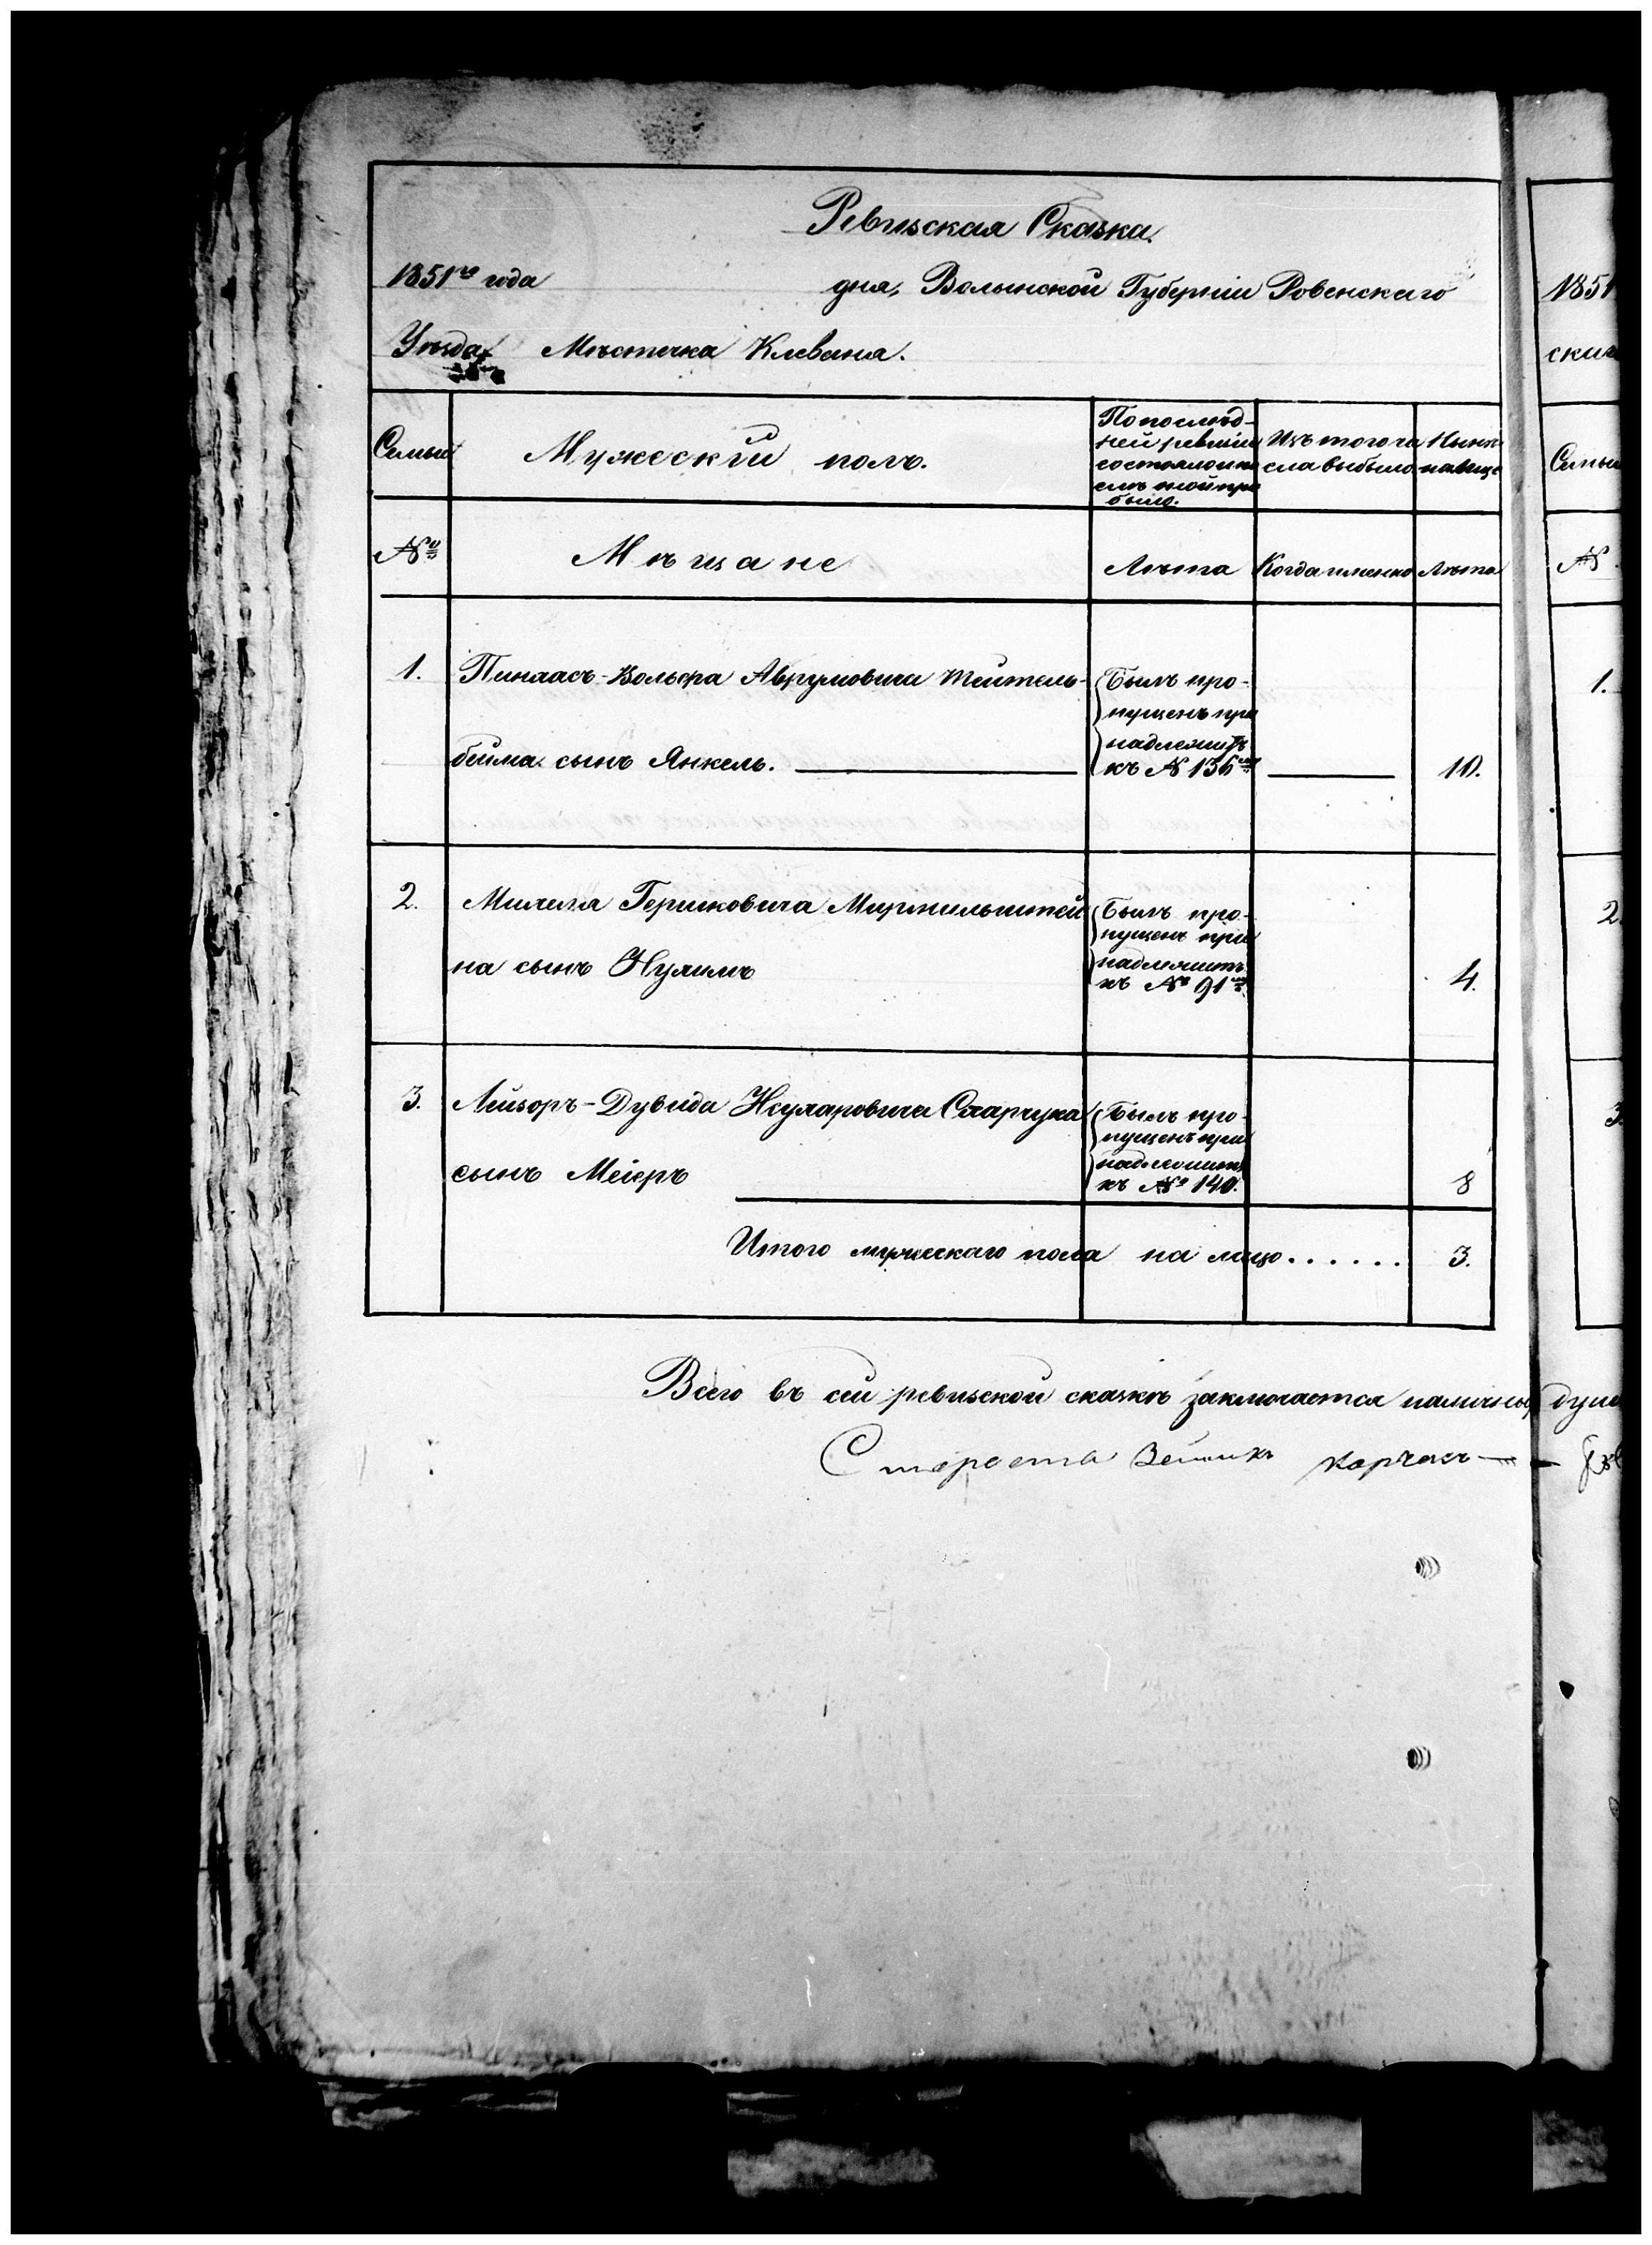 Ревизская Сказка.
1851го года дня, Волынской Губерніи Ровенскаго
Уѣзда Мѣстечка Клеваня.
Семьи
Мужескій полъ.
По послѣд-
ней ревизіи
состояло и по
слѣ оной при
было.
Изъ того чи
сла выбыло
Нынѣ
на лице
№
Мѣщане
Лѣта
Когда именно
Лѣта
1.
Пинхасъ-Вольфа Аврумовича Тейтель-
бейма сынъ Янкель.
Былъ про-
пущенъ при
надлежитъ
къ № 136
10.
2.
Михеля Гершковича
на сынъ Нухимъ
Былъ про-
пущенъ при
надлежитъ
къ № 91
4.
3.
Лейзоръ-Дувида
сынъ Меіеръ
Былъ про-
пущенъ при
надлежитъ
къ № 140.
8
Итого мужескаго пола на лицо...... 3.
Всего въ сей ревизской сказкѣ заключается наличныхъ душъ
Староста
1851
Семьи
№
1.
2.
3.